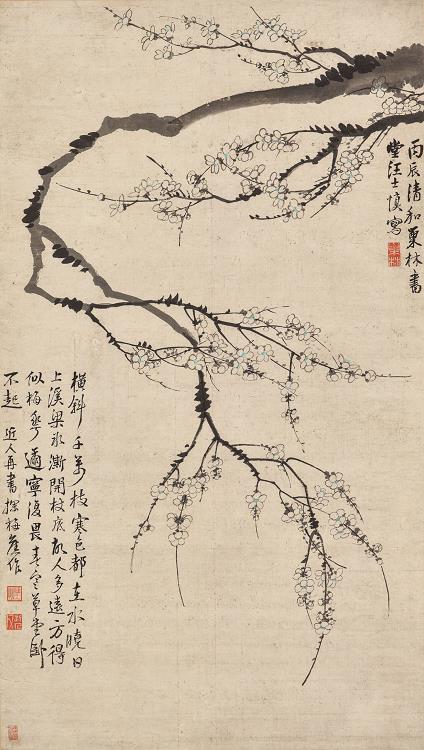 丙辰清和巢林書
堂汪士慎寫
橫斜千萬枝寒色都在水曉日
上溪梁氷澌開枝底故人多遠方得
似梅花邇寧復畏春寒草堂卧
不起 近人再書探梅舊作